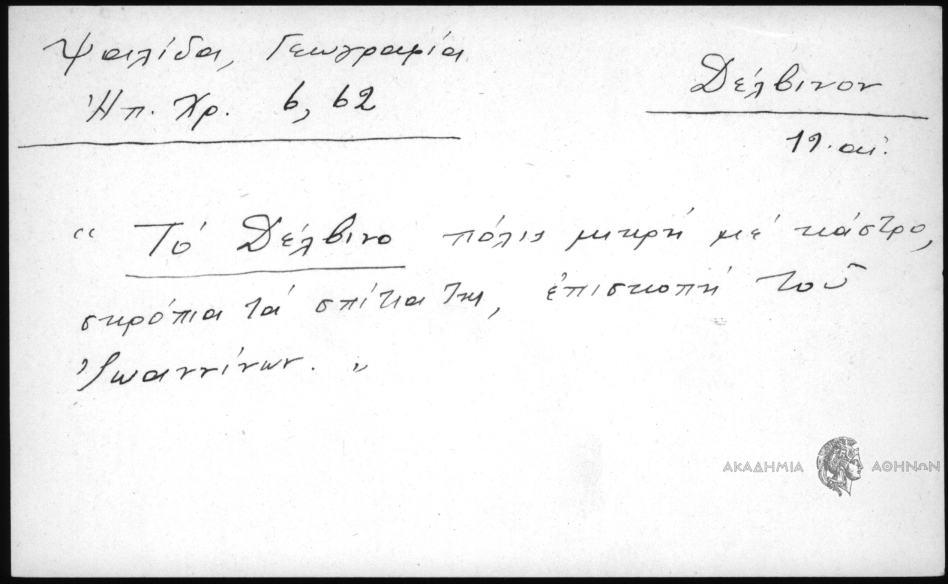 Ψαλίδα, Γεωγραφία
Ἠπ. Χρ. 6, 62
Δέλβινον
19. αἰ.
“ Τό Δέλβινο πόλις μικρή μέ κάστρο,
σκρόπια τά σπίτια της, ἐπισκοπή τοῦ
Ἰωαννίνων. ”
ΑΚΑΔΗΜΙΑ ΑΘΗΝΩΝ